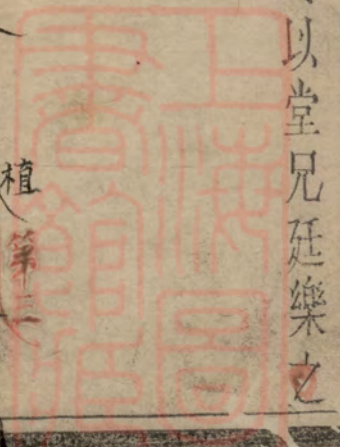 以堂兄廷樂之
植
第三
上海圖書館藏